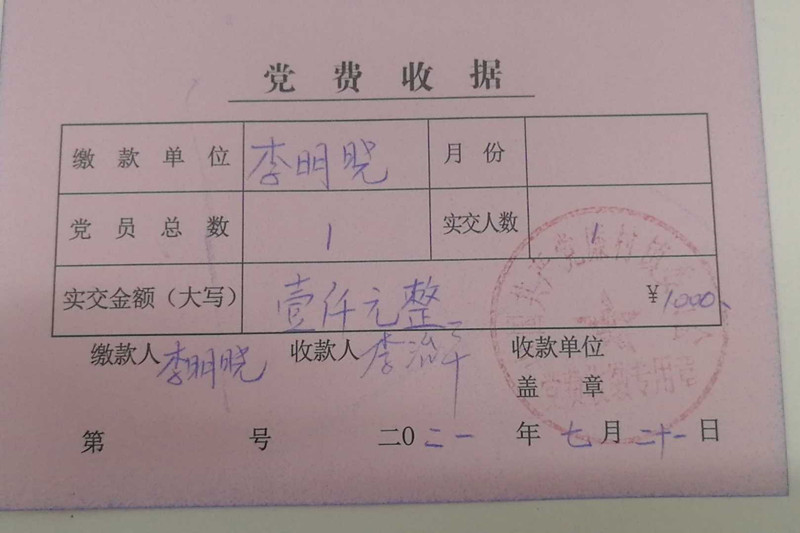 党费收据
缴款单位 李明晓 月份
党员总数 1 实交人数 1
实交金额（大写） 壹仟元整 ¥1000
缴款人 李明晓 收款人 李治 收款单位
盖章
第 号 二0二一年七月二十一日